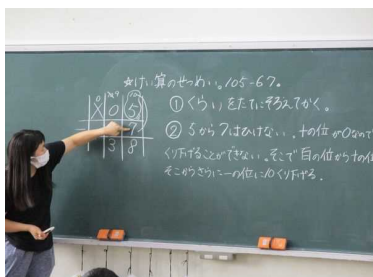 ☆けい算のせつめい。105-67。
① くらいをたてにそろえてかく。
② 5から7はひけない。十の位が0なので
くり下げることができない。そこで百の位から十の位
そこからさらに一の位に10くり下げる。
0 10
1 0 5
7
3 8